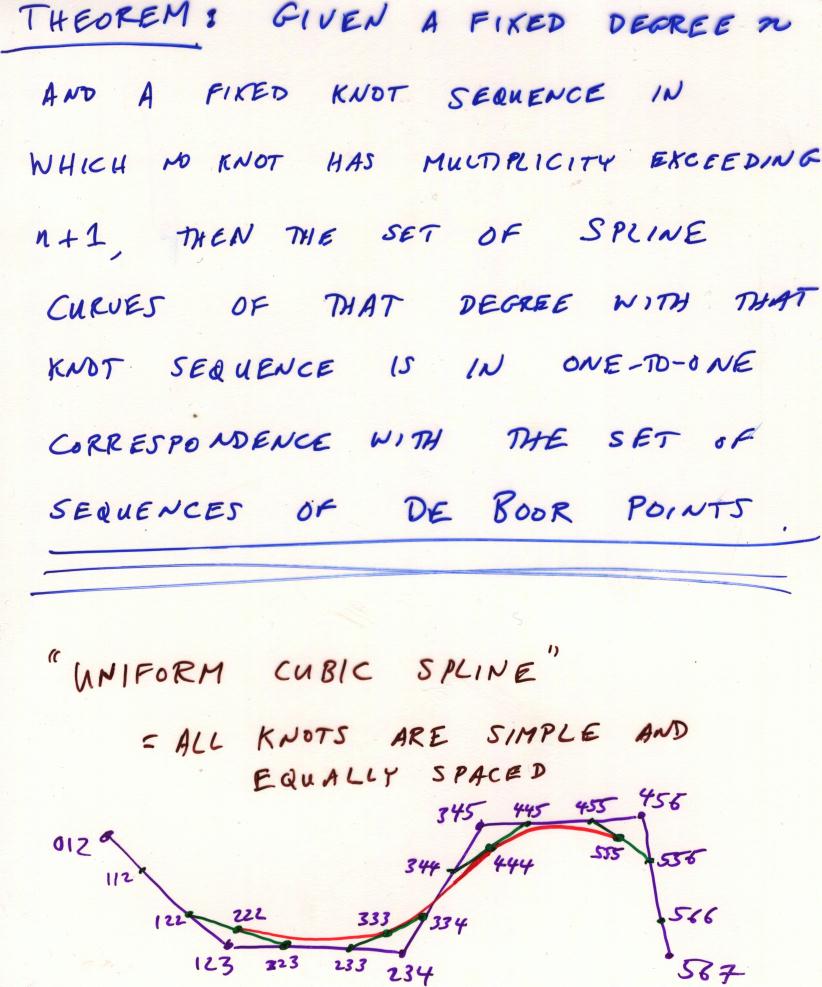 THEOREM: GIVEN A FIXED DEGREE n
AND A FIXED KNOT SEQUENCE IN
WHICH NO KNOT HAS MULTIPLICITY EXCEEDING
n+1, THEN THE SET OF SPLINE
CURVES OF THAT DEGREE WITH THAT
KNOT SEQUENCE IS IN ONE-TO-ONE
CORRESPONDENCE WITH THE SET OF
SEQUENCES OF DE BOOR POINTS.
"UNIFORM CUBIC SPLINE"
= ALL KNOTS ARE SIMPLE AND
EQUALLY SPACED
345 445 455 456
012
112
344 444 555 556
122 222 333 334 566
123 223 233 234 567